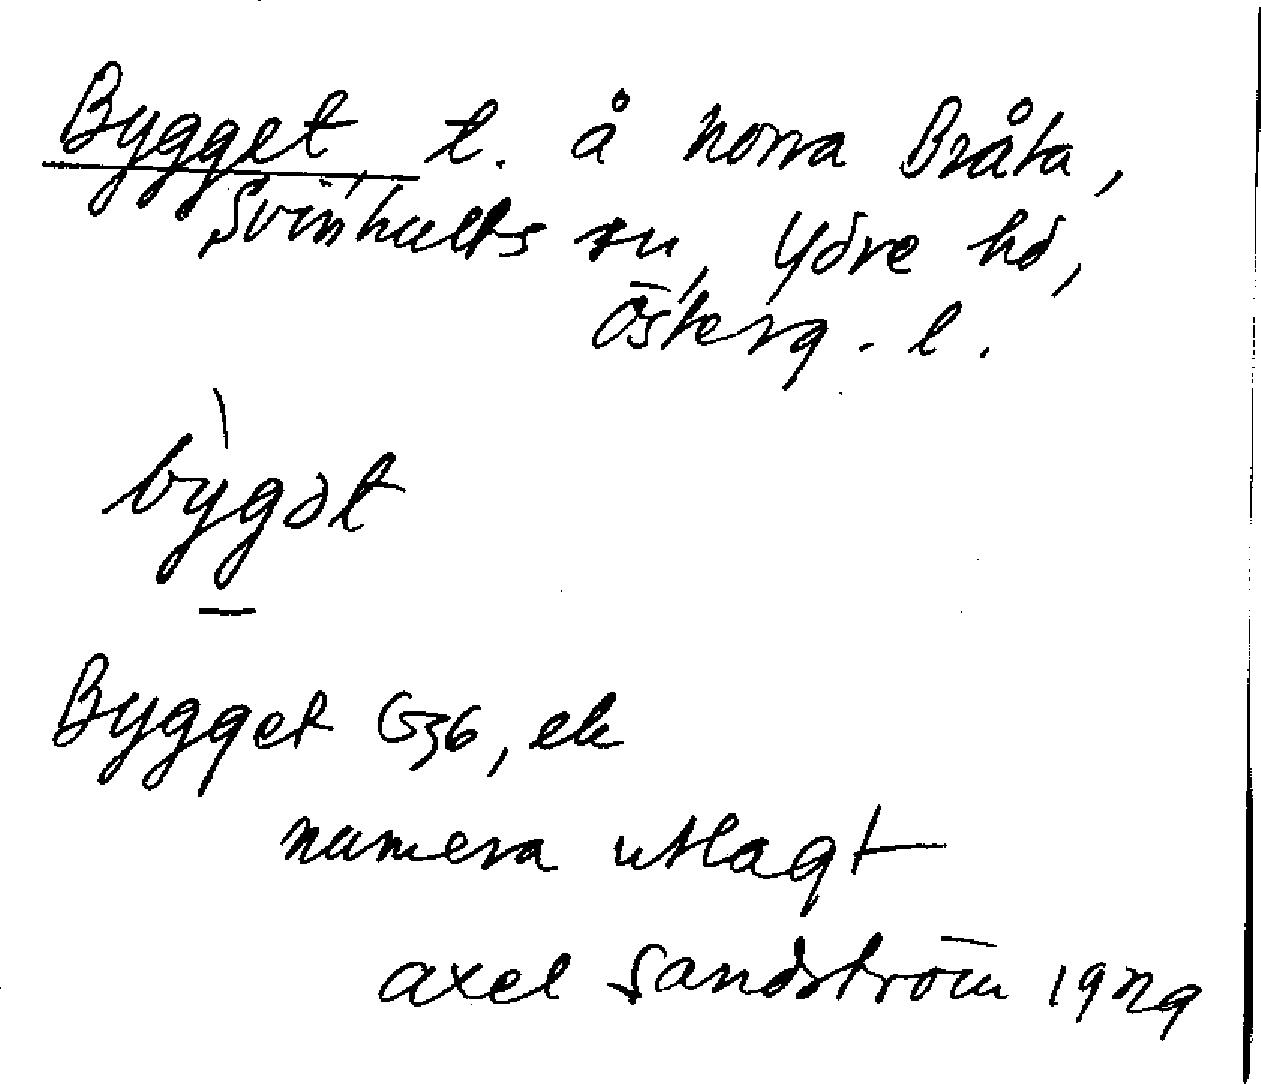 Bygget, t. å norra Bråta,
Svinhults sn, Ydre hd,
Österg. l.
bỳgət
Bygget G36, ek
numera utlagt
Axel Sandström 1929